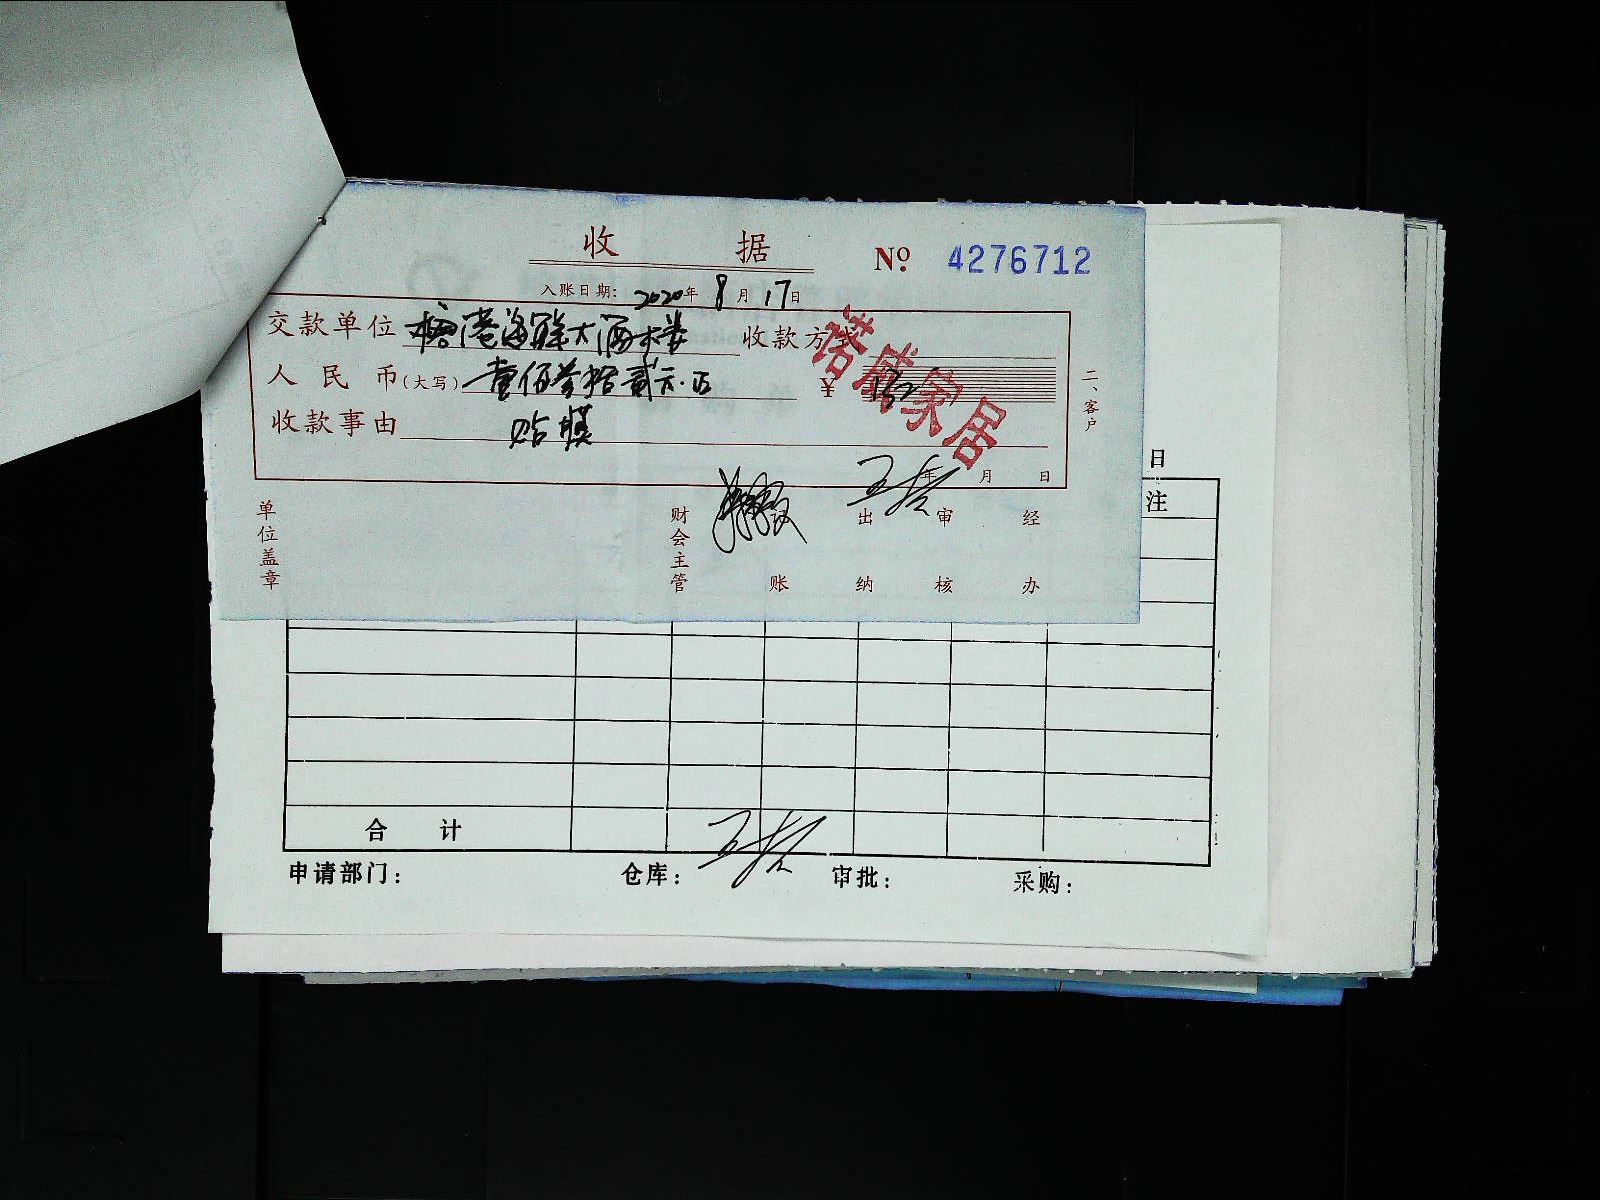 收 据 Nº 4276712
入账日期: 2020年 8月 17日
交款单位 榕港海鲜大酒楼 收款方式
人民币(大写) 壹佰叁拾贰元.正 ¥ 132
收款事由 贴膜
诺威家居
二、客户
年 月 日
单位盖章
财会主管 账 出纳 审核 经办
日
注
合 计
申请部门: 仓库: 审批: 采购: